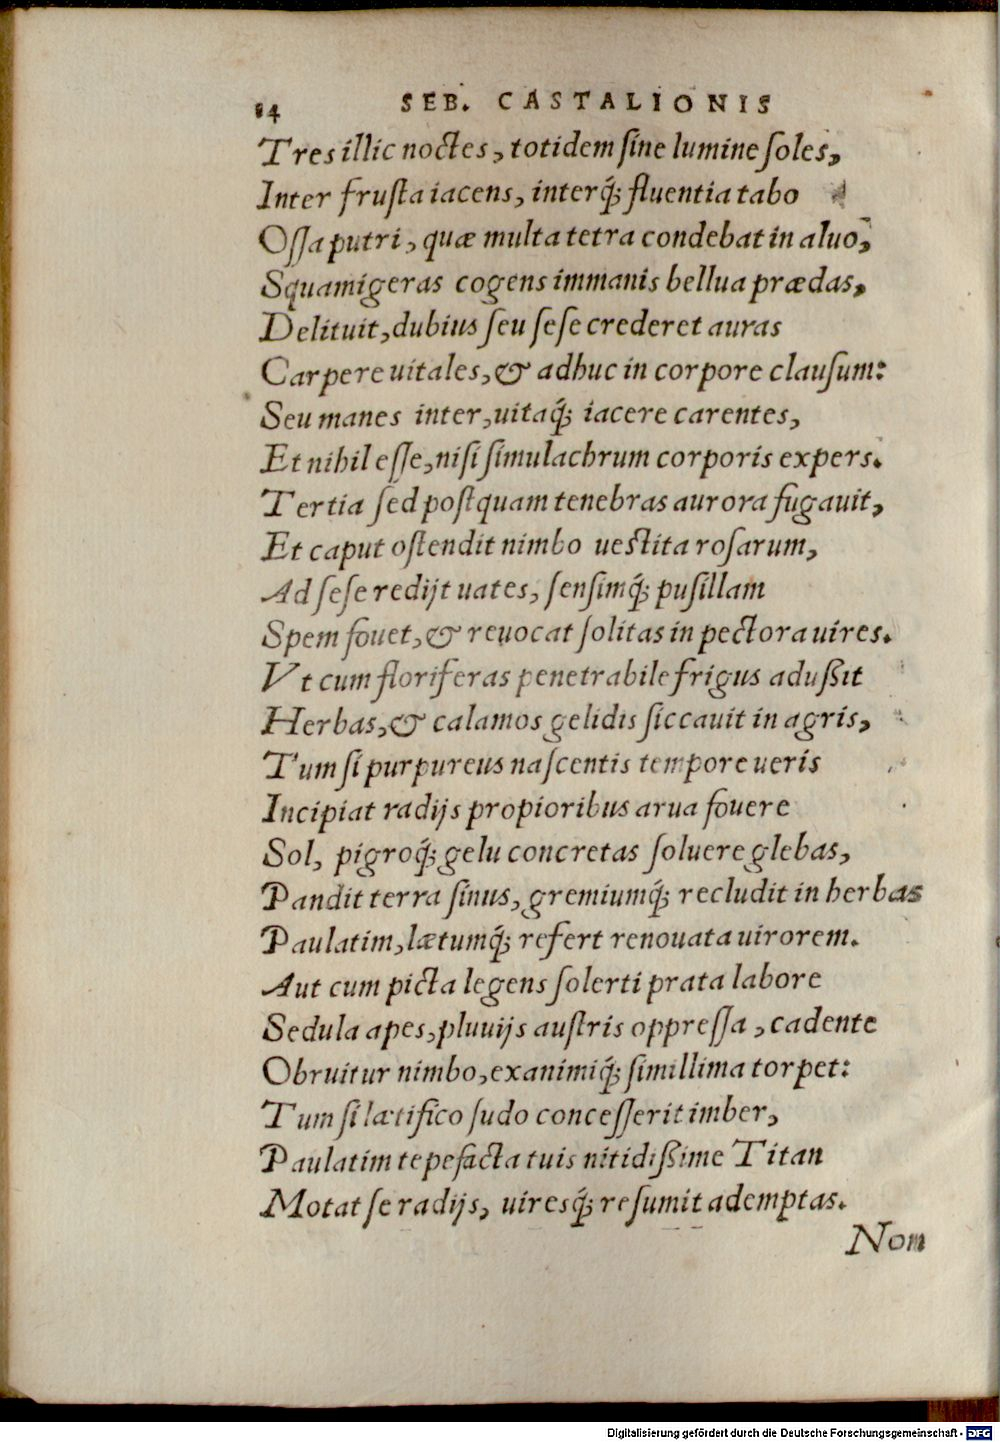 84 SEB. CASTALIONIS
Tres illic noctes, totidem ſine lumine ſoles,
Inter fruſta iacens, interq́; fluentia tabo
Oſſa putri, quæ multa tetra condebat in aluo,
Squamigeras cogens immanis bellua prædas,
Delituit, dubius ſeu ſeſe crederet auras
Carpere uitales, & adhuc in corpore clauſum:
Seu manes inter, uitaq́; iacere carentes,
Et nihil eſſe, niſi ſimulachrum corporis expers.
Tertia ſed poſtquam tenebras aurora fugauit,
Et caput oſtendit nimbo ueſtita roſarum,
Ad ſeſe redijt uates, ſenſimq́; puſillam
Spem fouet, & reuocat ſolitas in pectora uires.
Vt cum floriferas penetrabile frigus adußit
Herbas, & calamos gelidis ſiccauit in agris,
Tum ſi purpureus naſcentis tempore ueris
Incipiat radijs propioribus arua fouere
Sol, pigroq́; gelu concretas ſoluere glebas,
Pandit terra ſinus, gremiumq́; recludit in herbas
Paulatim, lætumq́; refert renouata uirorem.
Aut cum picta legens ſolerti prata labore
Sedula apes, pluuijs auſtris oppreſſa, cadente
Obruitur nimbo, exanimiq́; ſimillima torpet:
Tum ſi lætifico ſudo conceſſerit imber,
Paulatim tepefacta tuis nitidißime Titan
Motat ſe radijs, uiresq́; reſumit ademptas.
Non
Digitalisierung gefördert durch die Deutsche Forschungsgemeinschaft - DFG